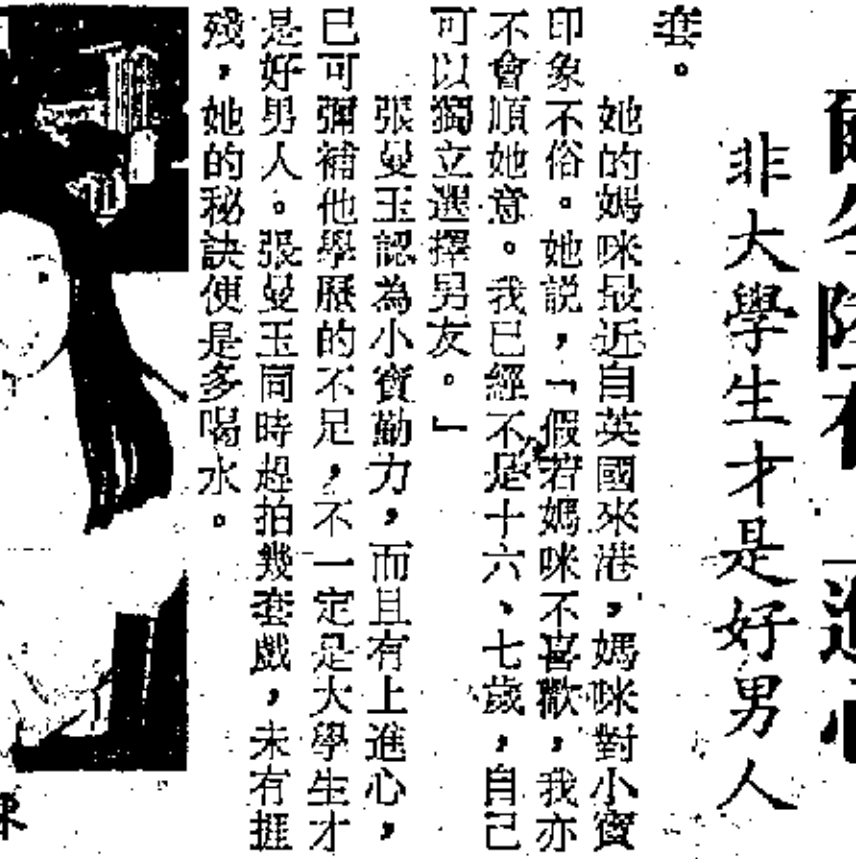 非大學生才是好男人
套。
她的媽咪最近自英國來港，媽咪對小寶
印象不俗。她説，「假若媽咪不喜歡，我亦
不會順她意。我已經不是十六、七歲，自己
可以獨立選擇男友。」
張曼玉認為小寶勤力，而且有上進心，
已可彌補他學歷的不足，不一定是大學生才
是好男人。張曼玉同時趕拍幾套戲，未有捱
殘，她的秘訣便是多喝水。